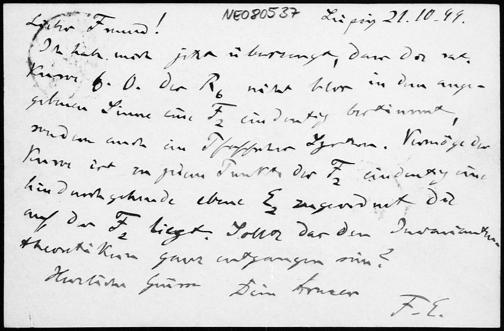 NE080537
Leipzig 21.10.99.
Lieber Freund!
Ich habe mich jetzt überzeugt, dass die rat.
Kurve 6. O. des R6 nicht blos in dem ange-
gebenen Sinne eine F2 eindeutig bestimmt,
sondern auch ein System. Vermöge der
Kurve ist zu jedem Punkt der F2 eindeutig eine
hindurchgehende ebene zugeordnet die
auf der F2 liegt. Sollte das den Invarianten-
theoretikern ganz entgangen sein?
Herzliche Grüsse Dein
F. E.